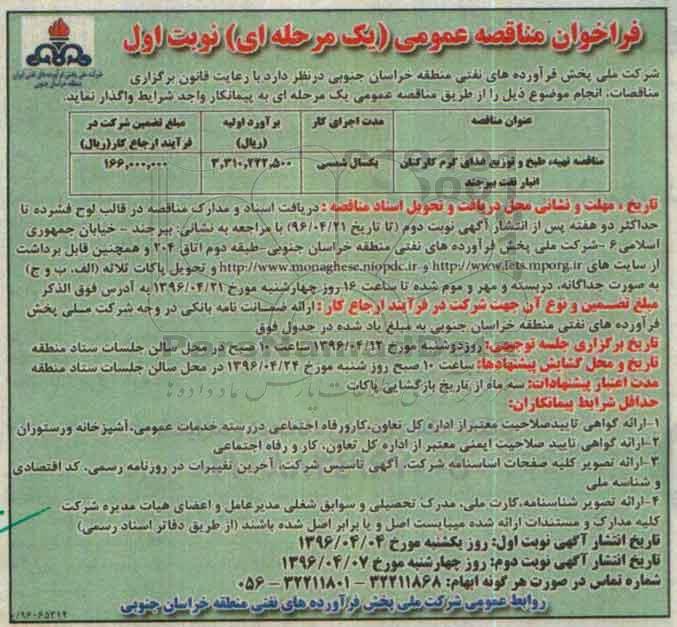 فراخوان مناقصه عمومی (یک مرحله ای) نوبت اول
شرکت ملی پخش فرآورده های نفتی ایران
منطقه خراسان جنوبی
شرکت ملی پخش فرآورده های نفتی منطقه خراسان جنوبی درنظر دارد با رعایت قانون برگزاری
مناقصات، انجام موضوع ذیل را از طریق مناقصه عمومی یک مرحله ای به پیمانکار واجد شرایط واگذار نماید.
عنوان مناقصه | مدت اجرای کار | برآورد اولیه (ریال) | مبلغ تضمین شرکت در فرآیند ارجاع کار(ریال)
مناقصه تهیه، طبخ و توزیع غذای گرم کارکنان انبار نفت بیرجند | یکسال شمسی | ۳,۳۱۰,۲۲۲,۵۰۰ | ۱۶۶,۰۰۰,۰۰۰
تاریخ ، مهلت و نشانی محل دریافت و تحویل اسناد مناقصه : دریافت اسناد و مدارک مناقصه در قالب لوح فشرده تا
حداکثر دو هفته پس از انتشار آگهی نوبت دوم (تا تاریخ ۹۶/۰۴/۲۱) با مراجعه به نشانی: بیرجند - خیابان جمهوری
اسلامی۶ -شرکت ملی پخش فرآورده های نفتی منطقه خراسان جنوبی-طبقه دوم اتاق ۲۰۴ و همچنین قابل برداشت
از سایت های http://www.iets.mporg.ir و http://www.monaghese.niopdc.ir و تحویل پاکات ثلاثه (الف، ب و ج)
به صورت جداگانه، دربسته و مهر و موم شده تا ساعت ۱۶ روز چهارشنبه مورخ ۱۳۹۶/۰۴/۲۱ به آدرس فوق الذکر
مبلغ تضمین و نوع آن جهت شرکت در فرآیند ارجاع کار : ارائه ضمانت نامه بانکی در وجه شرکت ملی پخش
فرآورده های نفتی منطقه خراسان جنوبی به مبلغ یاد شده در جدول فوق
تاریخ برگزاری جلسه توجیهی: روزدوشنبه مورخ ۱۳۹۶/۰۴/۱۲ ساعت ۱۰ صبح در محل سالن جلسات ستاد منطقه
تاریخ و محل گشایش پیشنهادها: ساعت ۱۰ صبح روز شنبه مورخ ۱۳۹۶/۰۴/۲۴ در محل سالن جلسات ستاد منطقه
مدت اعتبار پیشنهادات: سه ماه از تاریخ بازگشایی پاکات
حداقل شرایط پیمانکاران:
۱-ارائه گواهی تاییدصلاحیت معتبراز اداره کل تعاون،کارورفاه اجتماعی دررسته خدمات عمومی، آشپزخانه ورستوران
۲-ارائه گواهی تایید صلاحیت ایمنی معتبر از اداره کل تعاون، کار و رفاه اجتماعی
۳-ارائه تصویر کلیه صفحات اساسنامه شرکت، آگهی تاسیس شرکت، آخرین تغییرات در روزنامه رسمی، کد اقتصادی
و شناسه ملی
۴-ارائه تصویر شناسنامه،کارت ملی، مدرک تحصیلی و سوابق شغلی مدیرعامل و اعضای هیات مدیره شرکت
کلیه مدارک و مستندات ارائه شده میبایست اصل و یا برابر اصل شده باشند (از طریق دفاتر اسناد رسمی)
تاریخ انتشار آگهی نوبت اول: روز یکشنبه مورخ ۱۳۹۶/۰۴/۰۴
تاریخ انتشار آگهی نوبت دوم: روز چهارشنبه مورخ ۱۳۹۶/۰۴/۰۷
شماره تماس در صورت هر گونه ابهام: ۳۲۲۱۱۸۶۸ - ۳۲۲۱۱۸۰۱ - ۰۵۶
روابط عمومی شرکت ملی پخش فرآورده های نفتی منطقه خراسان جنوبی
۹۶۰۶۵۳۱۲/